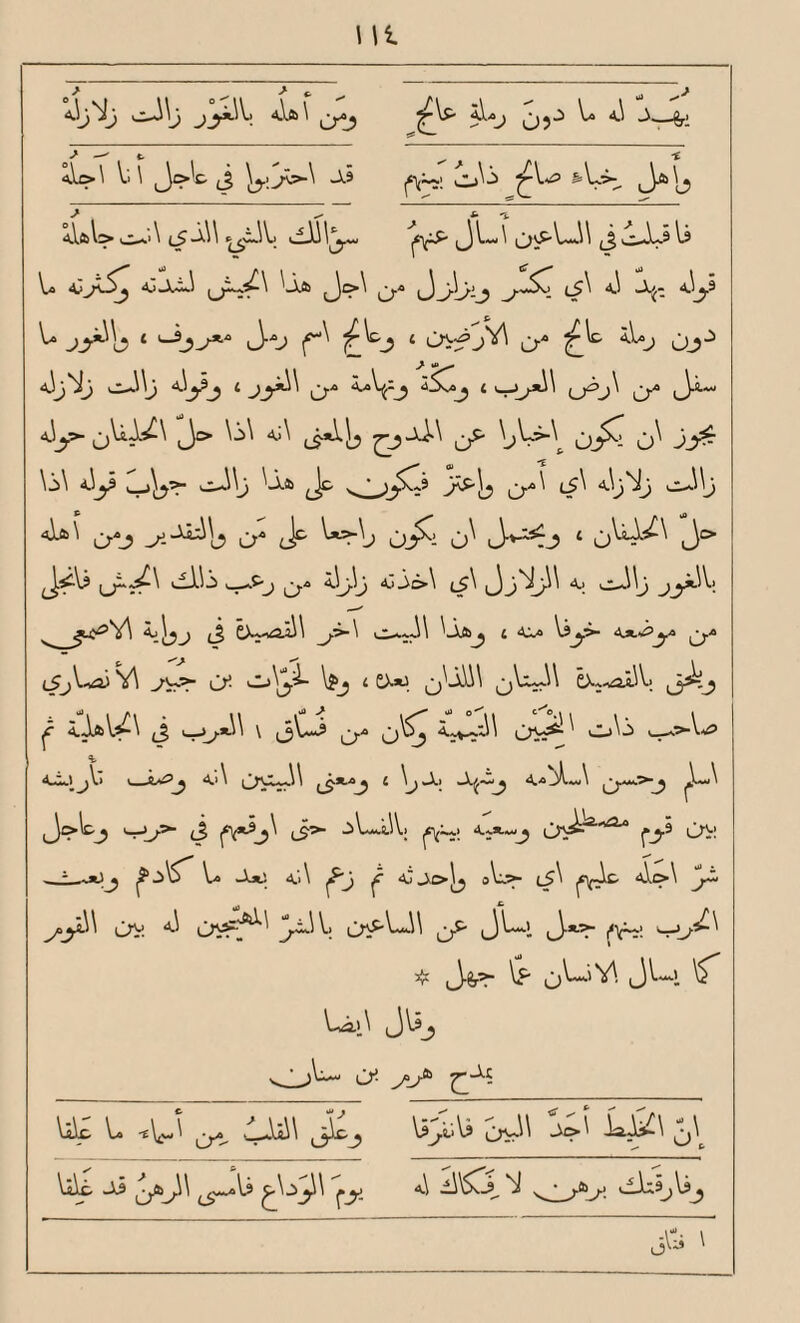 ١١٤
يَهِدُّ لَهُ ما دُونَ رَمْلَةِ عَالِجٍ ومَنْ أَهْلُهُ بالغَوْرِ زالَتْ زَلازِلُهْ
وأَهْلِ خِبَاءٍ صَالِحٍ ذَاتُ بَيْنِهِمْ قد احْتَرَبُوا في عاجِلٍ أَنا آجِلُهْ
فأقبلتُ في السَّاعِينَ أَسْأَلُ عَنْهُمُ سُؤالَكَ بالشَّيْءِ الّذي أَنتَ جاهِلُهْ
قوله يهدّ له اي يكسّر ويزلزل من اجل هذا الجيش لشدّته وكثرته ما
دون رملة عالج من الارضين ، وعالج اسم رمل معروف ، والغور ما
سفل من ارض العرب ، ومكّة وتِهامة من الغور ، وقوله زالت زلازله
يجوز ان يكون إخبارا عن الممدوح والمعنى انه اذا حلّ المكان خوّله
وزالت زلازله اي أمِن واعتزّ فيكون على هذا وزالت جواب قوله اذا
حلّ المكان ، ويحتمل ان يكون راجعا على من والتقدير ومن أهله
بالغور زالت به الزلازل اي اخذته زلزلة من رعب ذلك الجيش فانجفل
من موضعه خوفا منه ، وهذا البيت آخر القصيدة في رواية الاصمعي
ويلحق بالقصيدة البيتان اللذان بعد ، وهما لخوّات بن جُبَيْر الانصاري
صاحب ذات النِّحْيَيْن التيميّة وكان من فُسّاق ١ العرب في الجاهليّة ثم
اسلم وحسن اسلامه وشهد بدرا ، ومعنى البيتين انه وصف تأريثه
بين قوم مصطلحين وسعيه بينهم بالفساد حتى اوقعهم في حرب وعاجل
شرّ أجله عليهم اي جناه واحدثه ثم زعم انه بعد ما كادهم وبعث
الحرب بينهم جعل يسأل عن الساعين بالشرّ المهيّجين له بين القوم
كما يسأل الانسان عمّا جهل *
وقال ايضا
يمدح هرم بن سنان
إنّ الخليطَ أَجَدَّ البَيْنَ فانفرقا وعُلِّقَ القلبُ مِن أَسْماءَ ما عَلِقا
وفارقتك برهنٍ لا فَكاكَ له يومَ الوَداعِ فأمسى الرهنُ قد غلقا
١ فتّاق